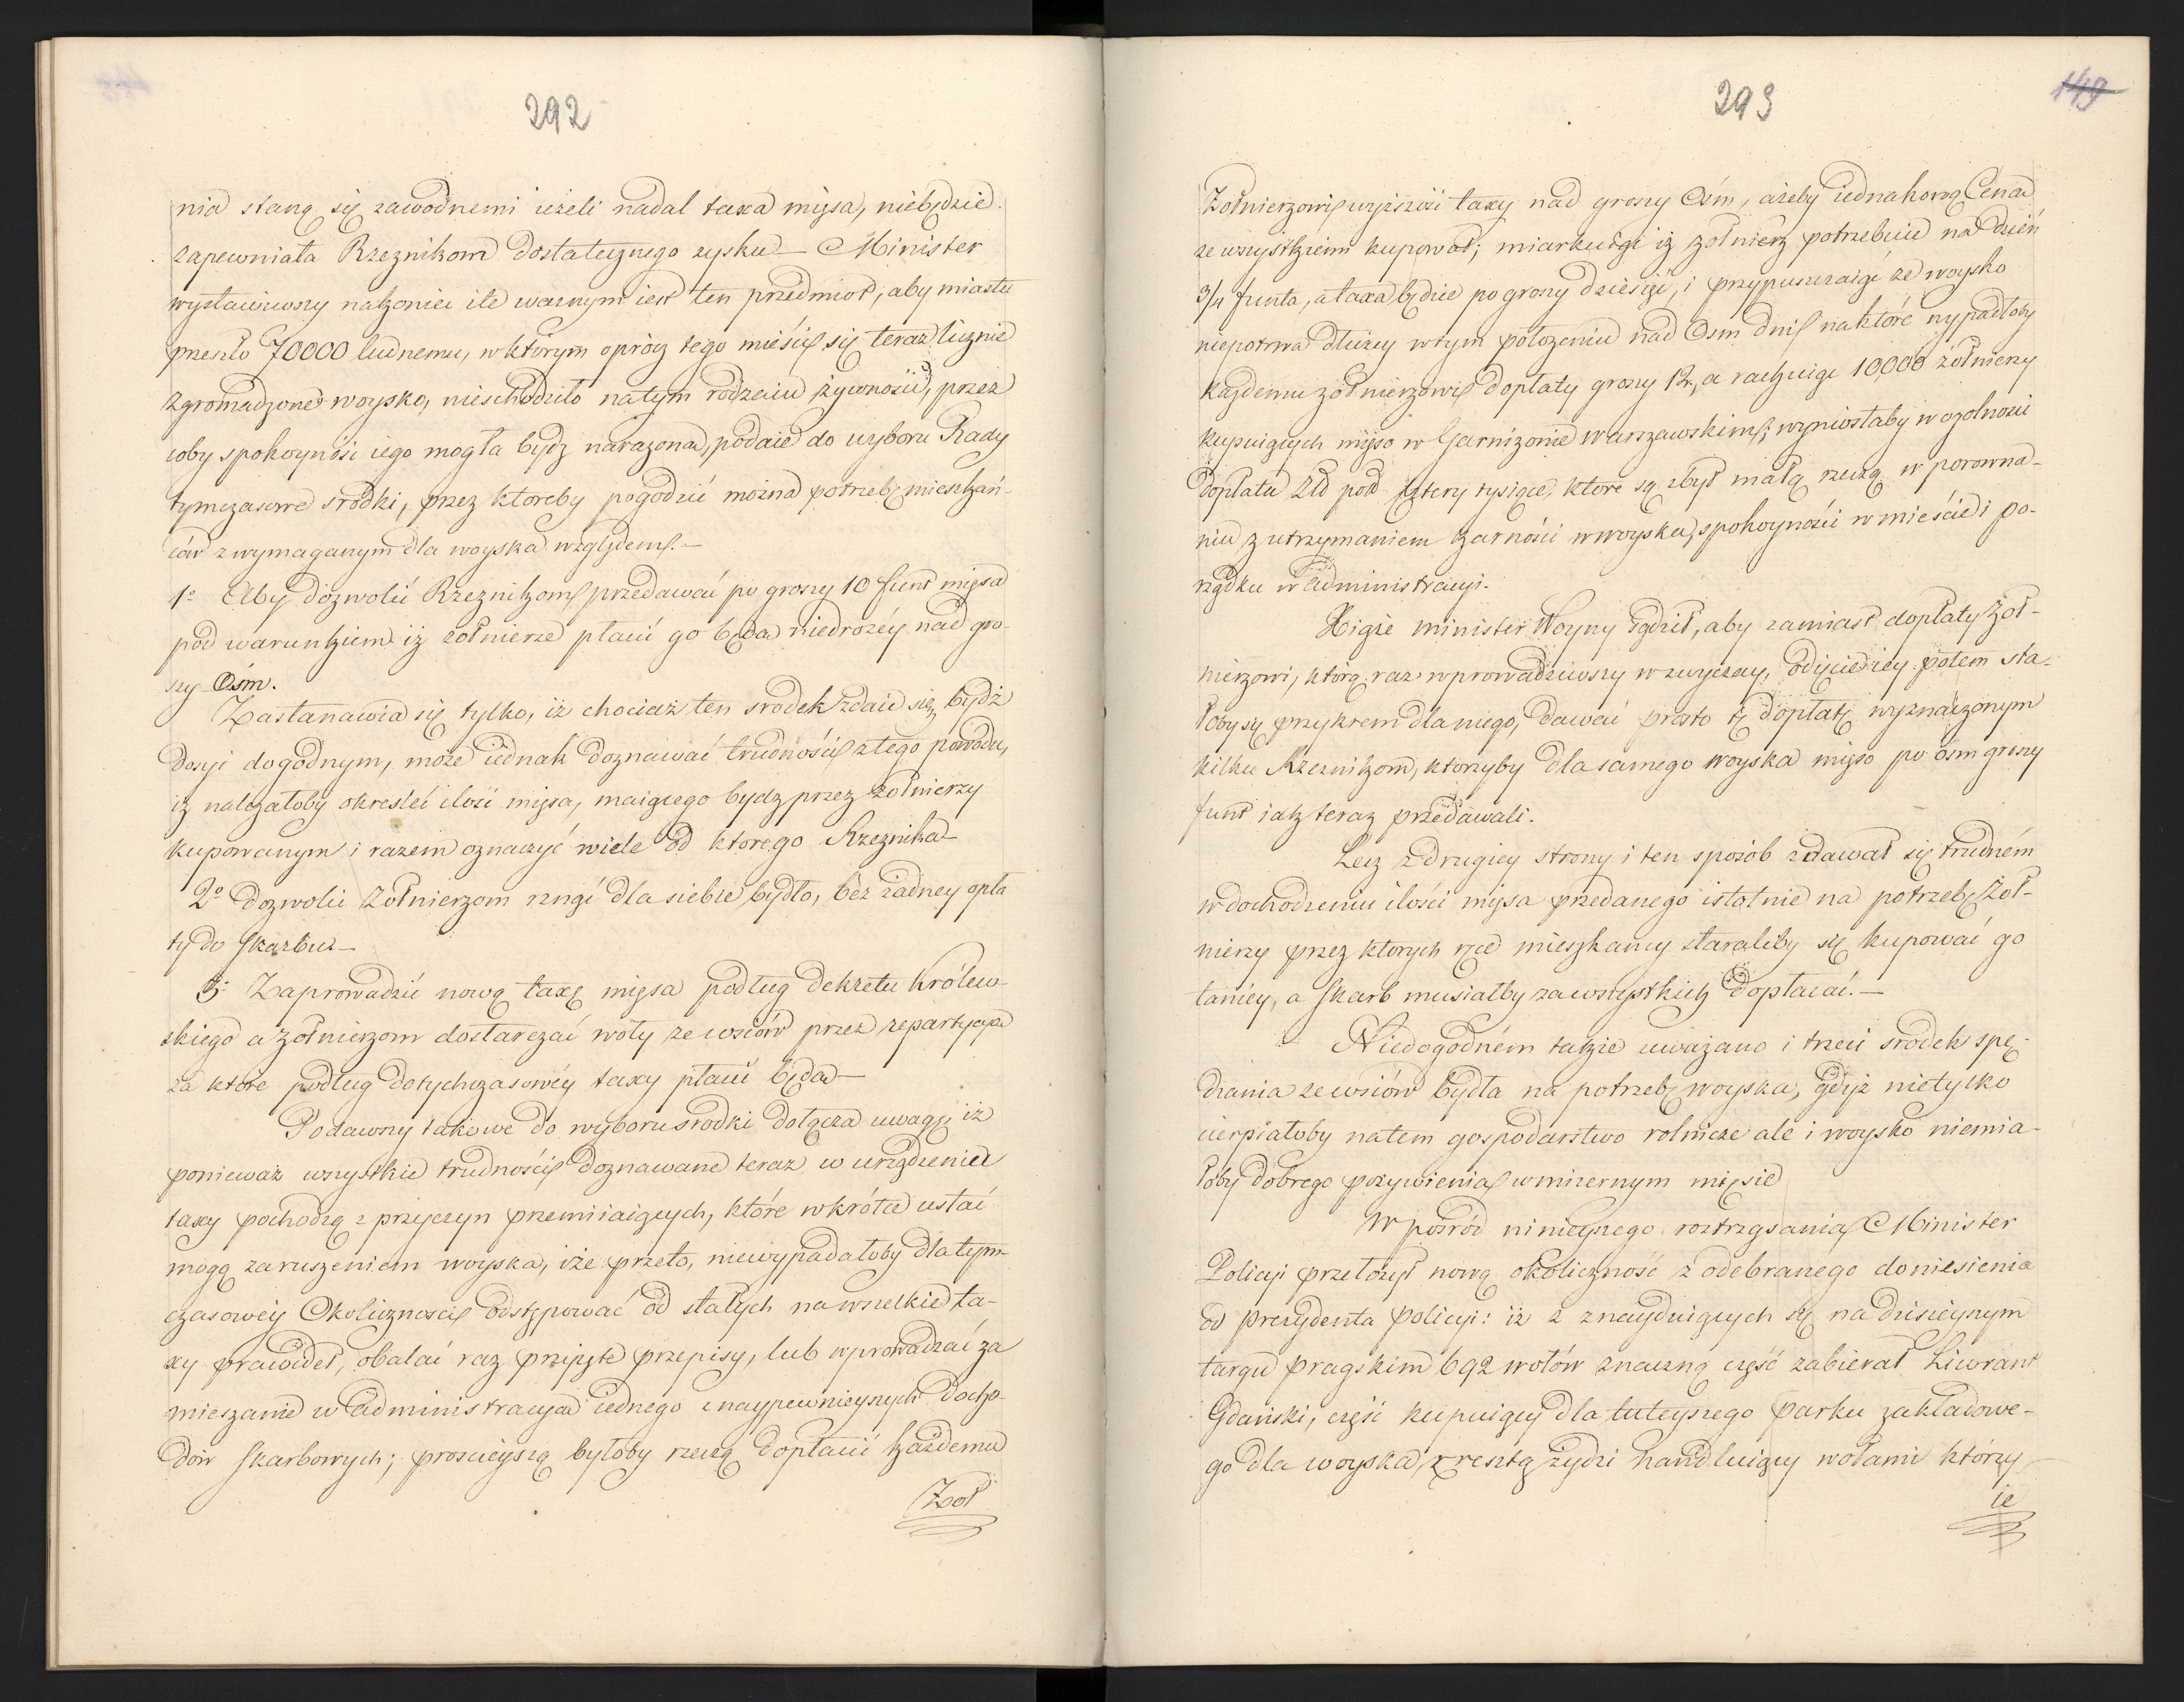 292
nia staną się zawodnemi ieżeli nadal taxa mięsa, niebędzie
zapewniała Rzeznikom dostatecznego zysku — Minister
wystawiwszy nakoniec ile ważnym iest ten przedmiot, aby miastu
przeszło 70000 ludnemu, w którym oprócz tego mieści się teraz licznie
zgromadzone woysko, nieschodziło natym rodzaiu żywności, przez
coby spokoyność iego mogła bydz narażona, podaie do wyboru Rady
tymczasowe srodki, przez ktoreby pogodzić można potrzebę mieszkań-
ców z wymaganym dla woyska względem. —
1º Aby dozwolić Rzeznikom przedawać po groszy 10 funt mięsa
pod warunkiem iż żołnierze płacić go będą niedrożéy nad gro-
szy Ośm.
Zastanawia się tylko, iż chociaż ten srodek zdaie się bydż
dosyć dogodnym, może iednak doznawać trudności z tego powodu,
iż należałoby określić ilość mięsa, maiącego bydz przez żołnierzy
kupowanym i razem oznaczyć wiele od ktorego Rzeznika —
2º Dozwolić Zołnierzom rznąć dla siebie bydło, bez żadney opła
ty do skarbu —
3º Zaprowadzić nową taxę mięsa podług dekretu Królew-
skiego a żołnierzom dostarczać woły ze wsiów przez repartycyą
za ktore podług dotychczasowéy taxy płacić będą —
Podawszy takowe do wyboru srodki dołącza uwagę, iż
ponieważ wszystkie trudności doznawane teraz w urządzeniu
taxy pochodzą z przyczyn przemiiaiących, które wkrótce ustać
mogą zaruszeniem woyska, iże przeto, niewypadałoby dla tym-
czasowéy Okoliczności odstępować od stałych na wszelkie ta-
xy prawideł, obalać raz przyięte przepisy, lub wprowadzać za
mieszanie w Administracyą iednego z naypewnieyszych docho-
dów Skarbowych; prościeyszą byłoby rzeczą dopłacić każdemu
Żoł
293
149
Żołnierzowi wyższość taxy nad groszy Ośm, ażeby iednakową Ceną
ze wszystkiemi kupował; miarkuiąc iż żołnierz potrzebuie na dzień
3/4 funta, a taxa będzie po groszy dziesięć, i przypuszczaiąc że woysko
niepotrwa dłużey w tym położeniu nad Ośm dni na które wypadłoby
każdemu żołnierzowi dopłaty groszy 12, a rachuiąc 10,000 żołnierzy
kupuiących mięso w Garnizonie warszawskim; wyniosłaby w ogolności
dopłata Złł pol cztery tysiące, ktore są zbyt małą rzeczą w porowna-
niu z utrzymaniem karności w woysku, spokoyności w mieście i po-
rządku w administracyi.
Xiąże minister Woyny sądził, aby zamiast dopłaty Żoł-
nierzowi, którą raz wprowadziwszy w zwyczay, odięcie iey potem sta-
łoby się przykrem dla niego, dawać prosto tę dopłatę wyznaczonym
kilku Rzeznikom, ktorzyby dla samego woyska mięso po ośm groszy
funt iak teraz przedawali.
Lecz z drugiey strony i ten sposób zdawał się trudném
w dochodzeniu ilości mięsa przedanego istotnie na potrzebę Żoł-
nierzy przez ktorych ręce mieszkańcy staraliby się kupować go
taniéy, a skarb musiałby za wszystkich dopłacać. —
Niedogodném także uważano i trzeci srodek spę-
dzania ze wsiów bydła na potrzebę woyska, gdyż nietylko
cierpiałoby natem gospodarstwo rolnicze ale i woysko niemia-
łoby dobrego pożywienia w mizernym mięsie
W posród ninieyszego roztrząsania Minister
Policyi przełożył nową okoliczność z odebranego doniesienia
od prezydenta policyi: iż z znayduiących się na dzisieyszym
targu pragskim 692 wołów znaczną część zabierał Liwerant
Gdański, część kupuiący dla tuteyszego parku zakładowe-
go dla woyska, z resztą żydzi handluiący wołami którzy
ie